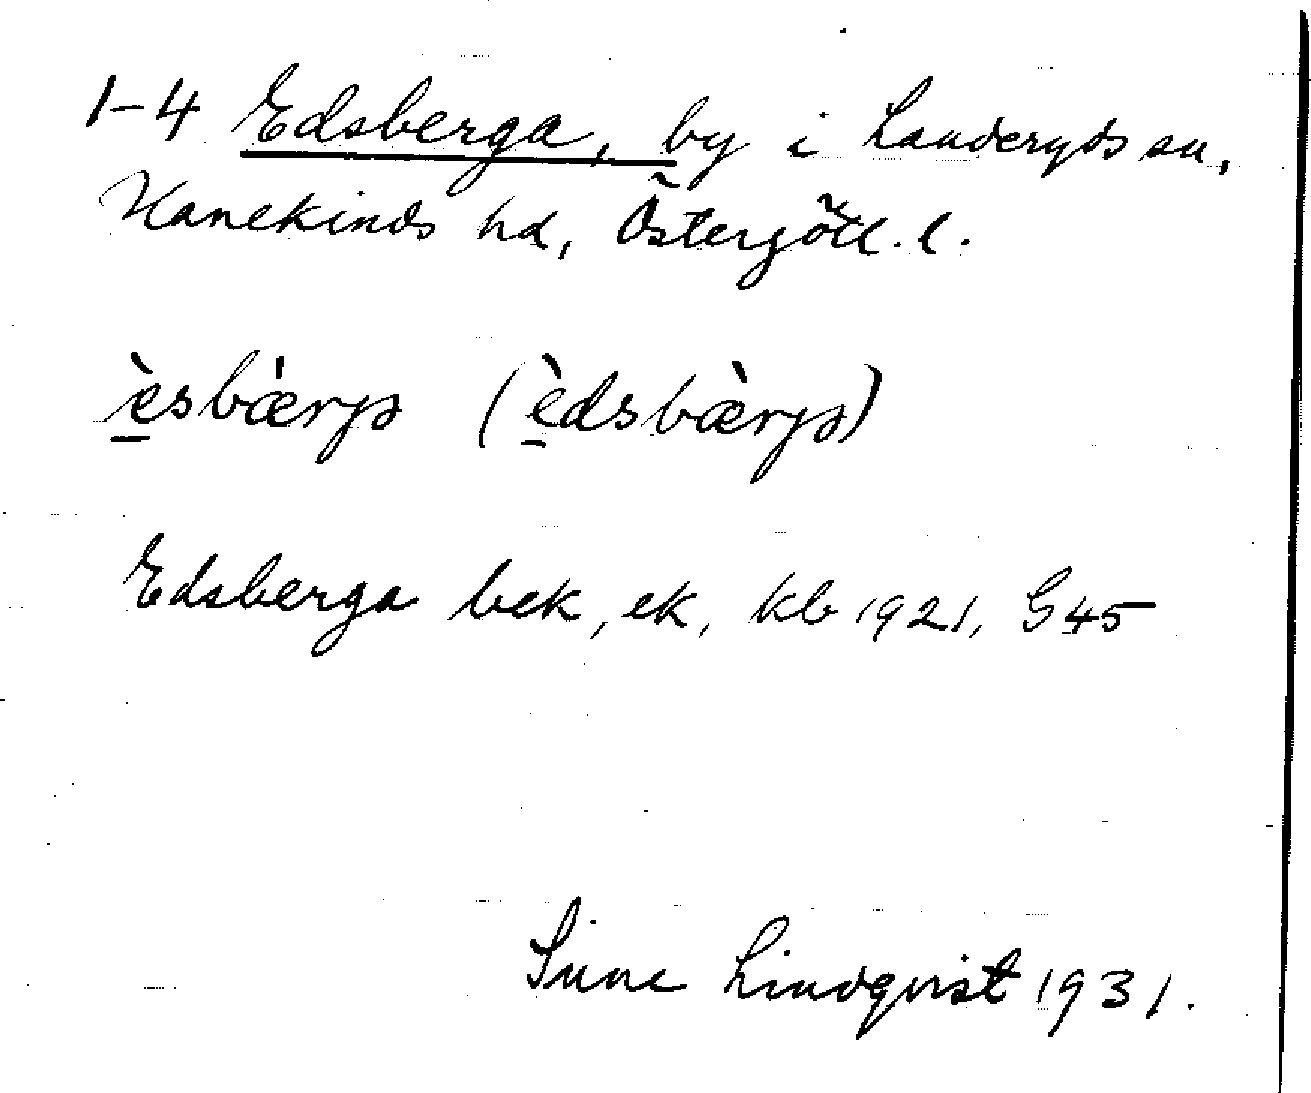 1-4 Edsberga, by i Landeryds sn,
Hanekinds hd, Östergötl. l.
è̱sbæ̀rjə (è̱dsbæ̀rjə)
Edsberga bek, ek, kb 1921, G45
Sune Lindqvist 1931.